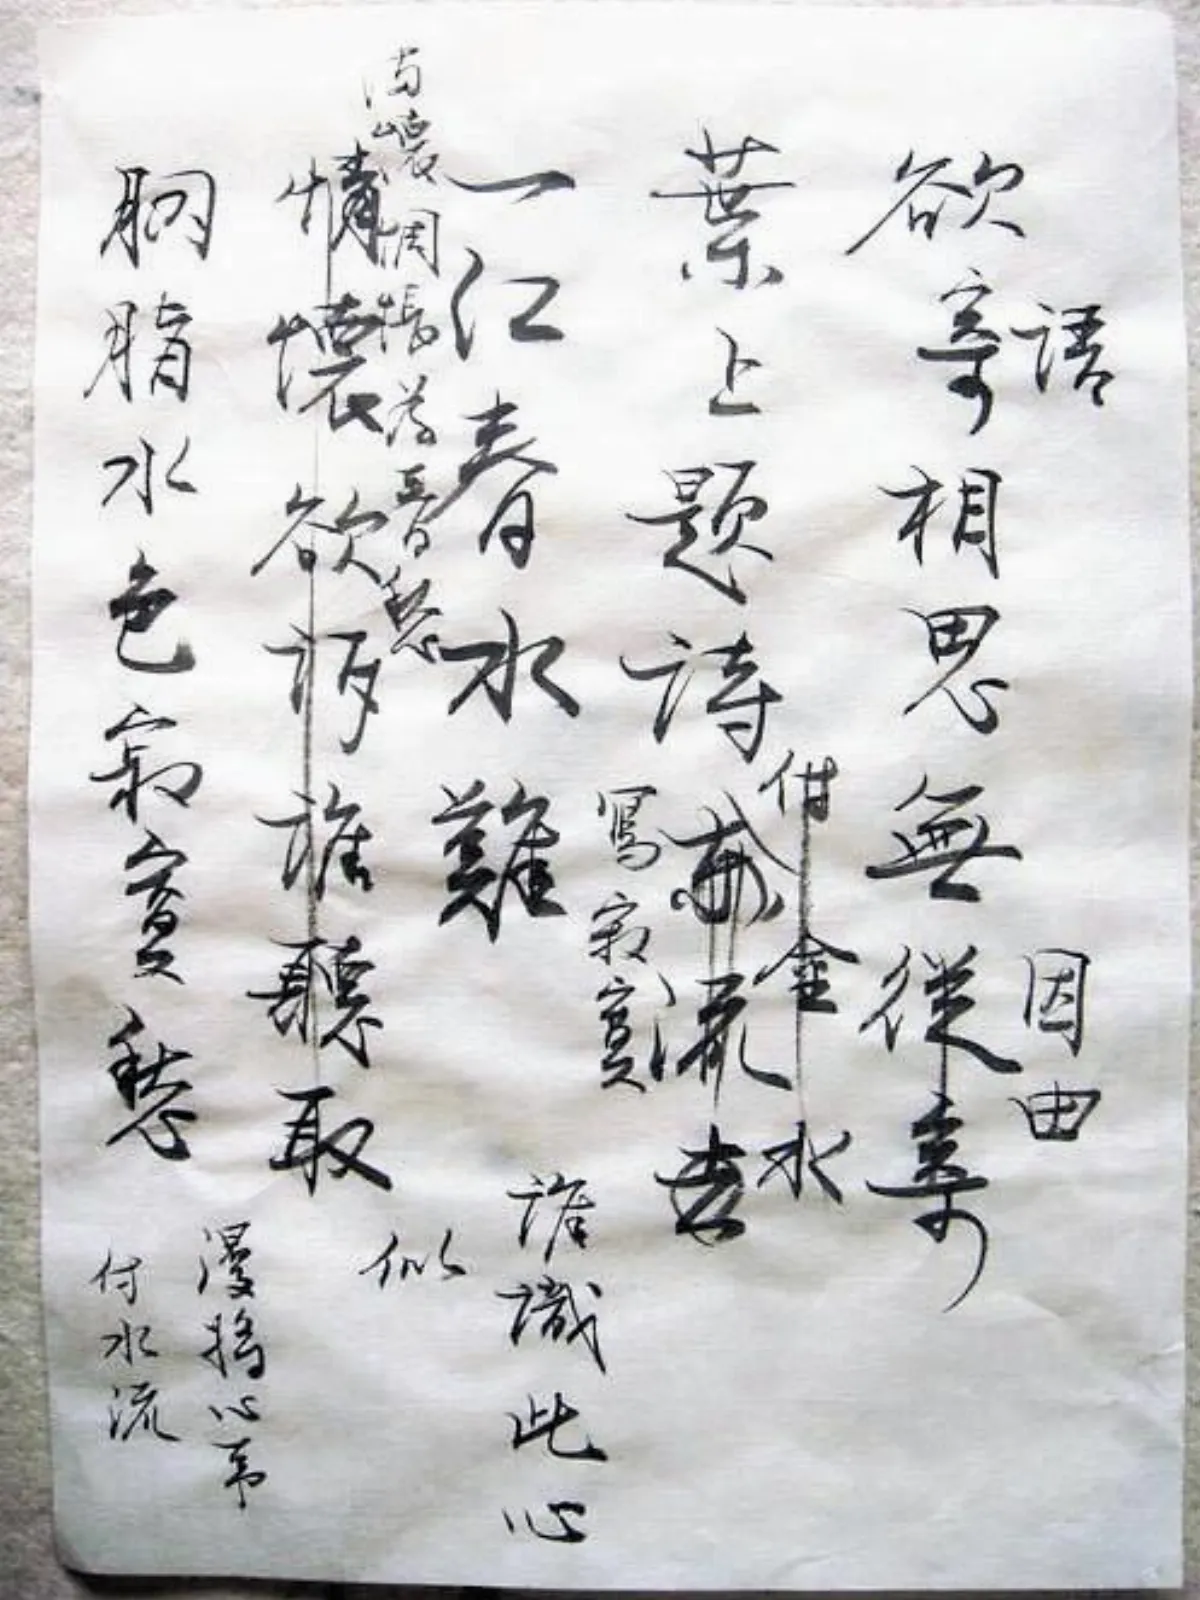 欲寄相思無從寄
語
因由
葉上題詩
流去
付金水
寫寂寞
一江春水難
誰識此心
似
惆悵
情懷欲訴誰聽取
漫將心事
付水流
胭脂水色寂寞愁